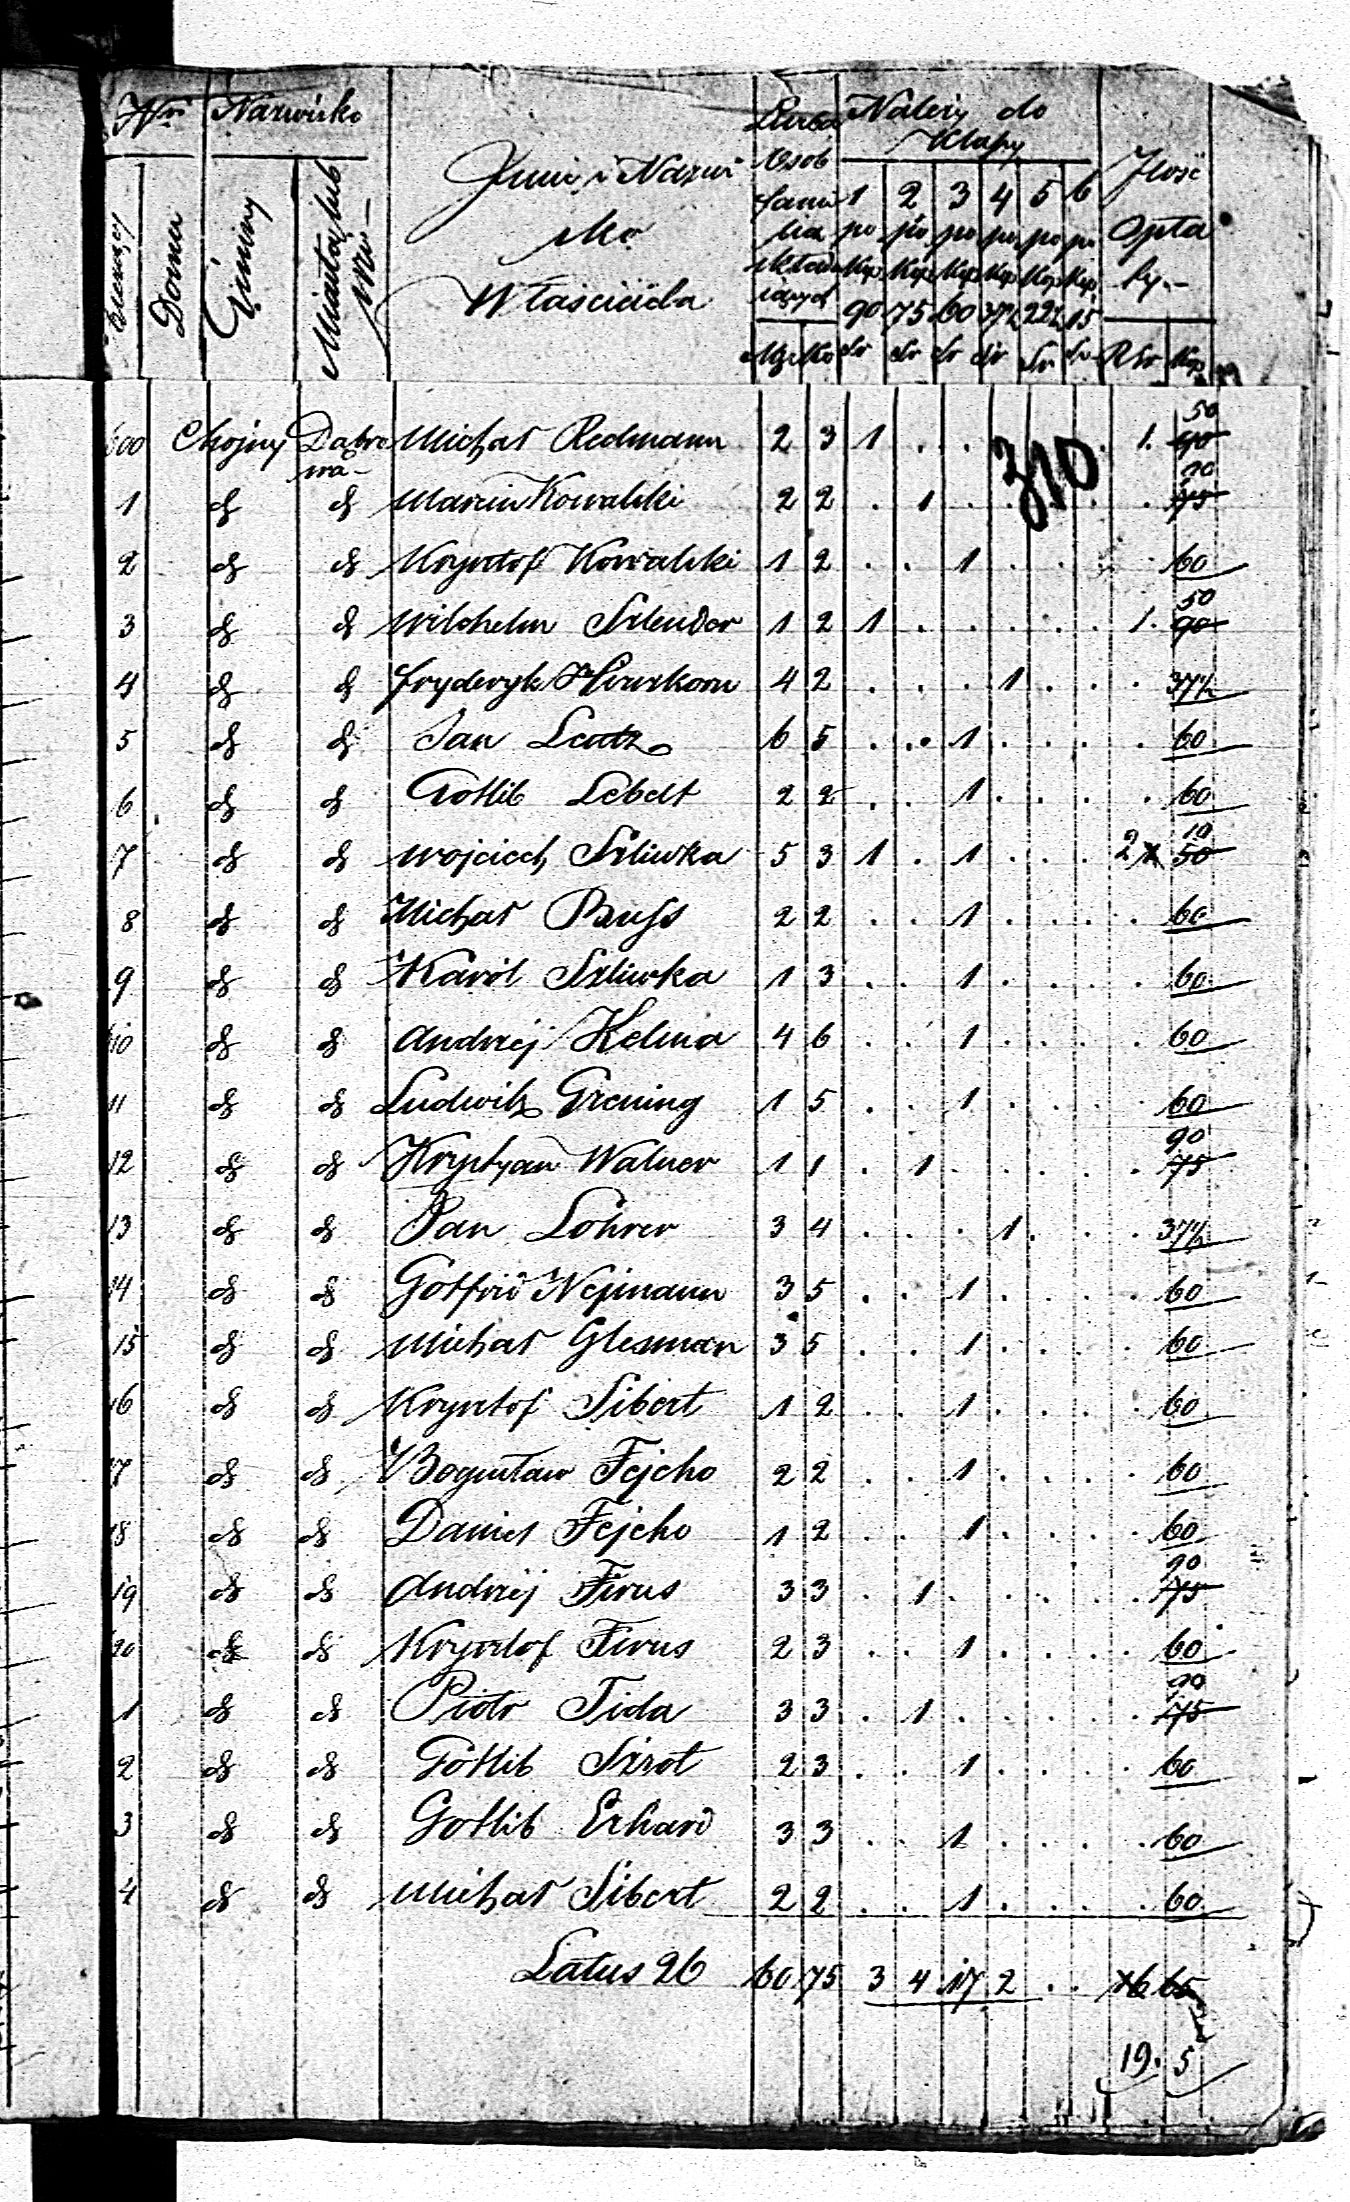 Nri Nazwisko
Imie i Nazwi
sko
Właściciela
Liczba
osob
Należy do
Klasy
Ilość
Opła
ty.-
Domu
Gminy
Miasta lub
Wsi
1 2 3 4 5 6
po po po po po po
Kop Kop Kop Kop Kop Kop
90 75 60 37½ 22½ 15
Mę Ko Sr Sr Sr Sr Sr Sr RSr Kop
310
50
600 Chojny Dabro Michał Redmann 2 3 1 . . 1. 90
wa-
90
1 d d Marcin Kowalski 2 2 . 1 . . 75
2 d d Krysztof Kowalski 1 2 . . 1 . . . 60
50
3 d d Wilchelm Szlender 1 2 1 . . . . . 1. 90
4 d d Fryderyk 4 2 . . . 1 . . . 37½
5 d d Jan 6 5 . . 1 . . . . 60
6 d d Gotlib Lebelt 2 2 . . 1 . . . . 60
10
7 d d Wojciech Szliwka 5 3 1 . 1 . . . 2 50
8 d d Michał Buss 2 2 . . 1 . . . . 60
9 d d Karól Szliwka 1 3 . . 1 . . . . 60
10 d d Andrzéj Kelma 4 6 . . 1 . . . . 60
11 d d Ludwik Grening 1 5 . . 1 . . . . 60
90
12 d d Krystyan Walner 1 1 . 1 . . . . . 75
13 d d Jan Lohrer 3 4 . . . 1 . . . 37½
14 d d Gotfrid Nejmann 3 5 . . 1 . . . . 60
15 d d Michał Glesman 3 5 . . 1 . . . . 60
16 d d Krysztof Sibert 1 2 . . 1 . . . . 60
17 d d Bogusław Fejcho 2 2 . . 1 . . . . 60
18 d d Daniel Fejcho 1 2 . . 1 . . . . 60
90
19 d d Andrzéj Firus 3 3 . 1 . . . . . 75
20 d d Krysztof Firus 2 3 . . 1 . . . . 60
90
1 d d Piotr Tida 3 3 . 1 . . . . . 75
2 d d Gotlib Szrot 2 3 . . 1 . . . . 60
3 d d Gotlib Erhard 3 3 . . 1 . . . . 60
4 d d Michał Sibert 2 2 . . 1 . . . . 60
Latus 26 60 75 3 4 17 2 . . 16 65
19. 5